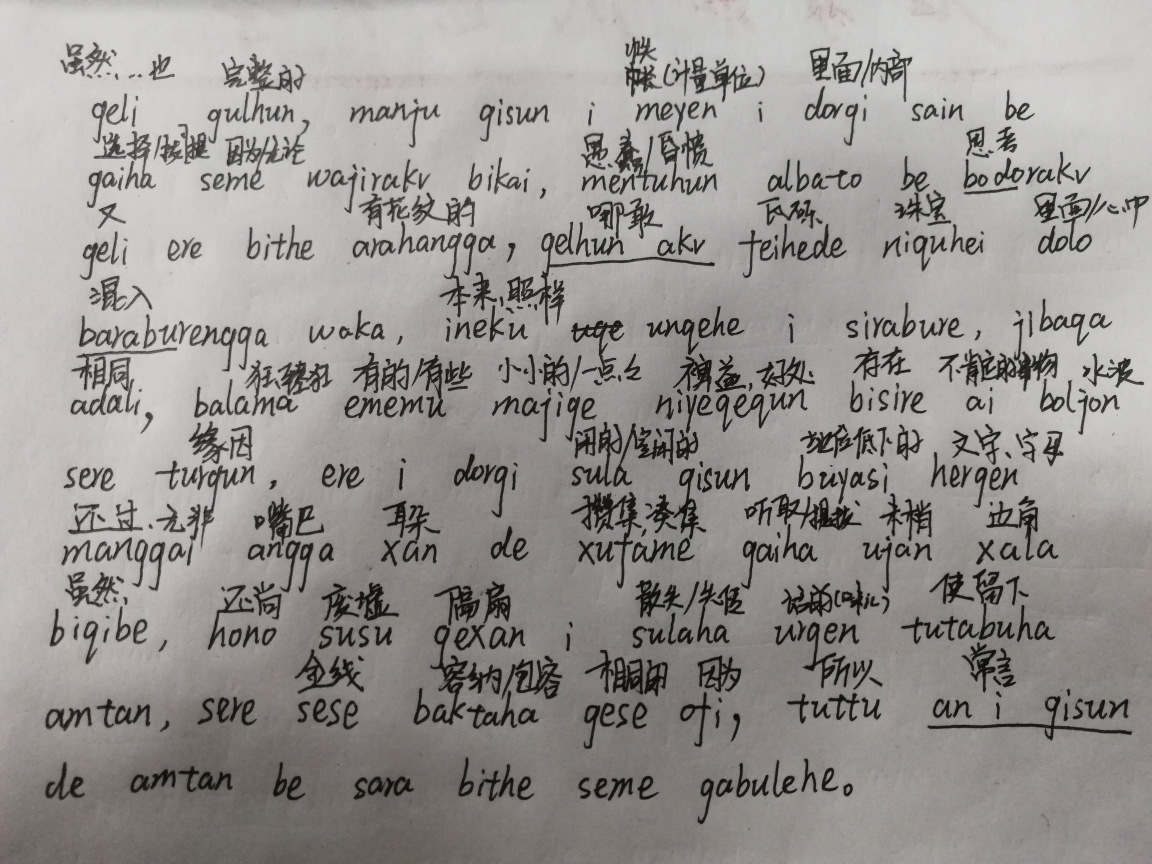 虽然…也 完整的 帙(计量单位) 里面/内部
geli gulhun, manju gisun i meyen i dorgi sain be
选择/ 因为/无论 愚蠢/昏愦 思考
gaiha seme wajirakv bikai, mentuhun albato be bodorakv
又 有花纹的 哪敢 瓦砾 珠宝 里面/心中
geli ere bithe arahangga, gelhun akv feihede niquhei dolo
混入 本来,照样
baraburengga waka, ineku unqehe i sirabure, jibaqa
相同 狂 有的/有些 小小的/一点点 裨益,好处 存在 水波
adali, balama ememu majige niyeqequn bisire ai boljon
缘因 闲的/空闲的 地位低下的 文字、字母
sere turgun, ere i dorgi sula gisun buyasi hergen
还过、无非 嘴巴 耳朵 攒集,凑集 听取/ 末梢 边角
manggai angga xan de xufame gaiha ujan xala
虽然, 还尚 废墟 隔扇 散失/失传 使留下
biqibe, hono susu gexan i sulaha urgen tutabuha
金线 容纳/包容 相同的 因为 所以 常言
amtan, sere sese baktaha gese ofi, tuttu an i gisun
de amtan be sara bithe seme gabulehe。